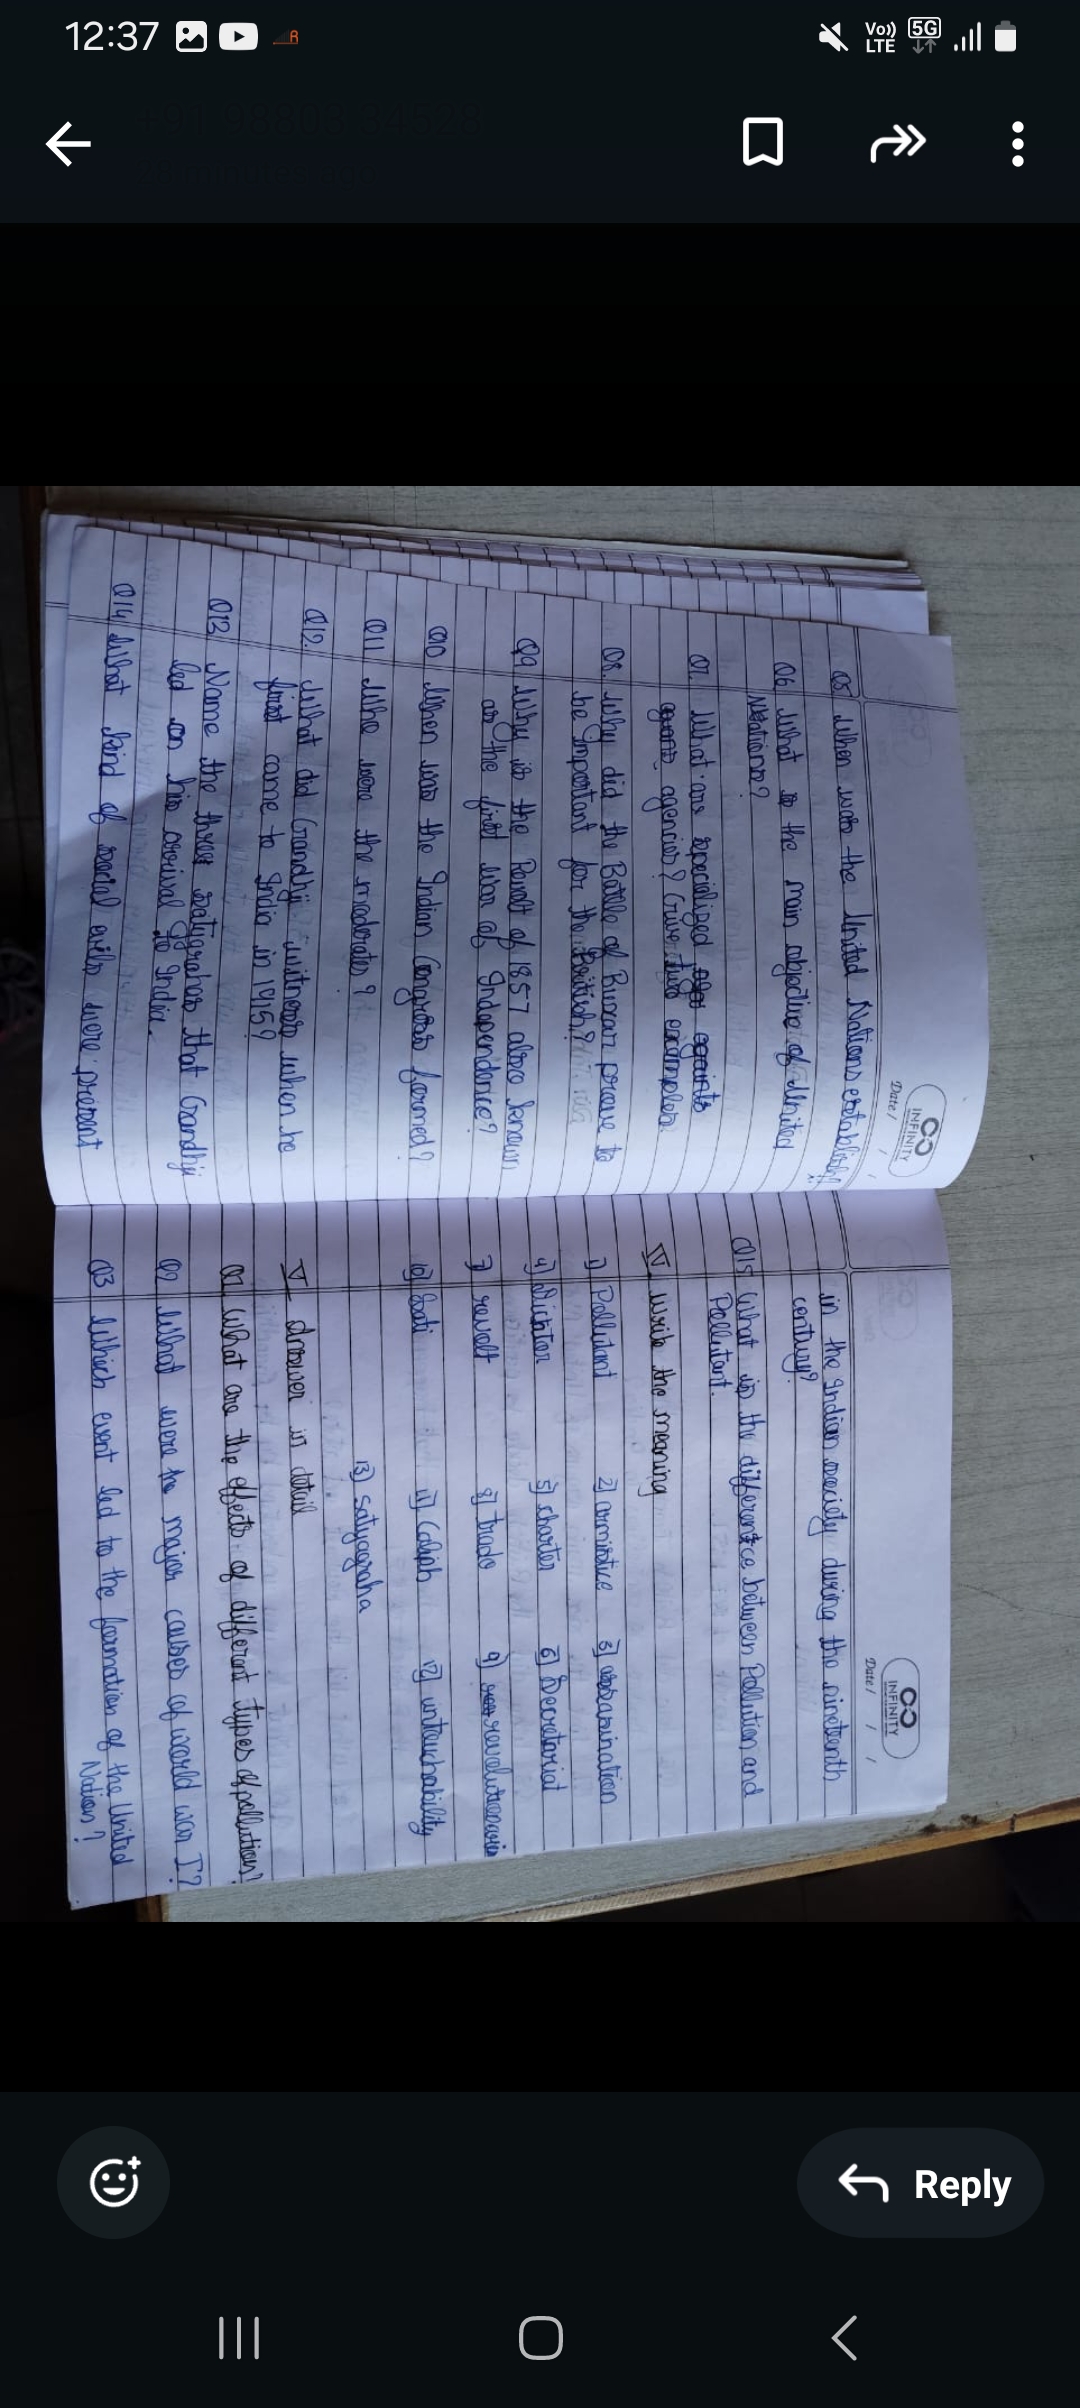 12:37
Vo)) LTE 5G
INFINITY
Date / / /
Q5 When was the United Nations establish
Q6 What is the main objective of United
Nations?
Q7. What are specialized
agencies? Give two examples
Q8. Why did the Battle of Buxarr prove to
be important for the British?
Q9 Why is the Revolt of 1857 also known
as the first War of Independence?
Q10 When was the Indian Congress formed?
Q11 Who were the moderates?
Q12. What did Gandhji witness when he
first came to India in 1915?
Q13 Name the three satygrahas that Gandhji
led on his arrival to India.
Q14 What kind of social evils were present
INFINITY
Date / / /
in the Indian society during the nineteenth
century?
Q15 What is the difference between Pollution and
Pollutant.
IV write the meaning
1) Pollutant 2) armistice 3) assasination
4) Dictator 5) charter 6) Secretariat
7) revolt 8) trade 9) revolutionaries
10) Sati 11) Caliph 12) untouchability
13) satyagraha
V Answer in detail
Q1 What are the effects of different types of pollution?
Q2 What were the major causes of world war I?
Q3 Which event led to the formation of the United
Nations?
Reply